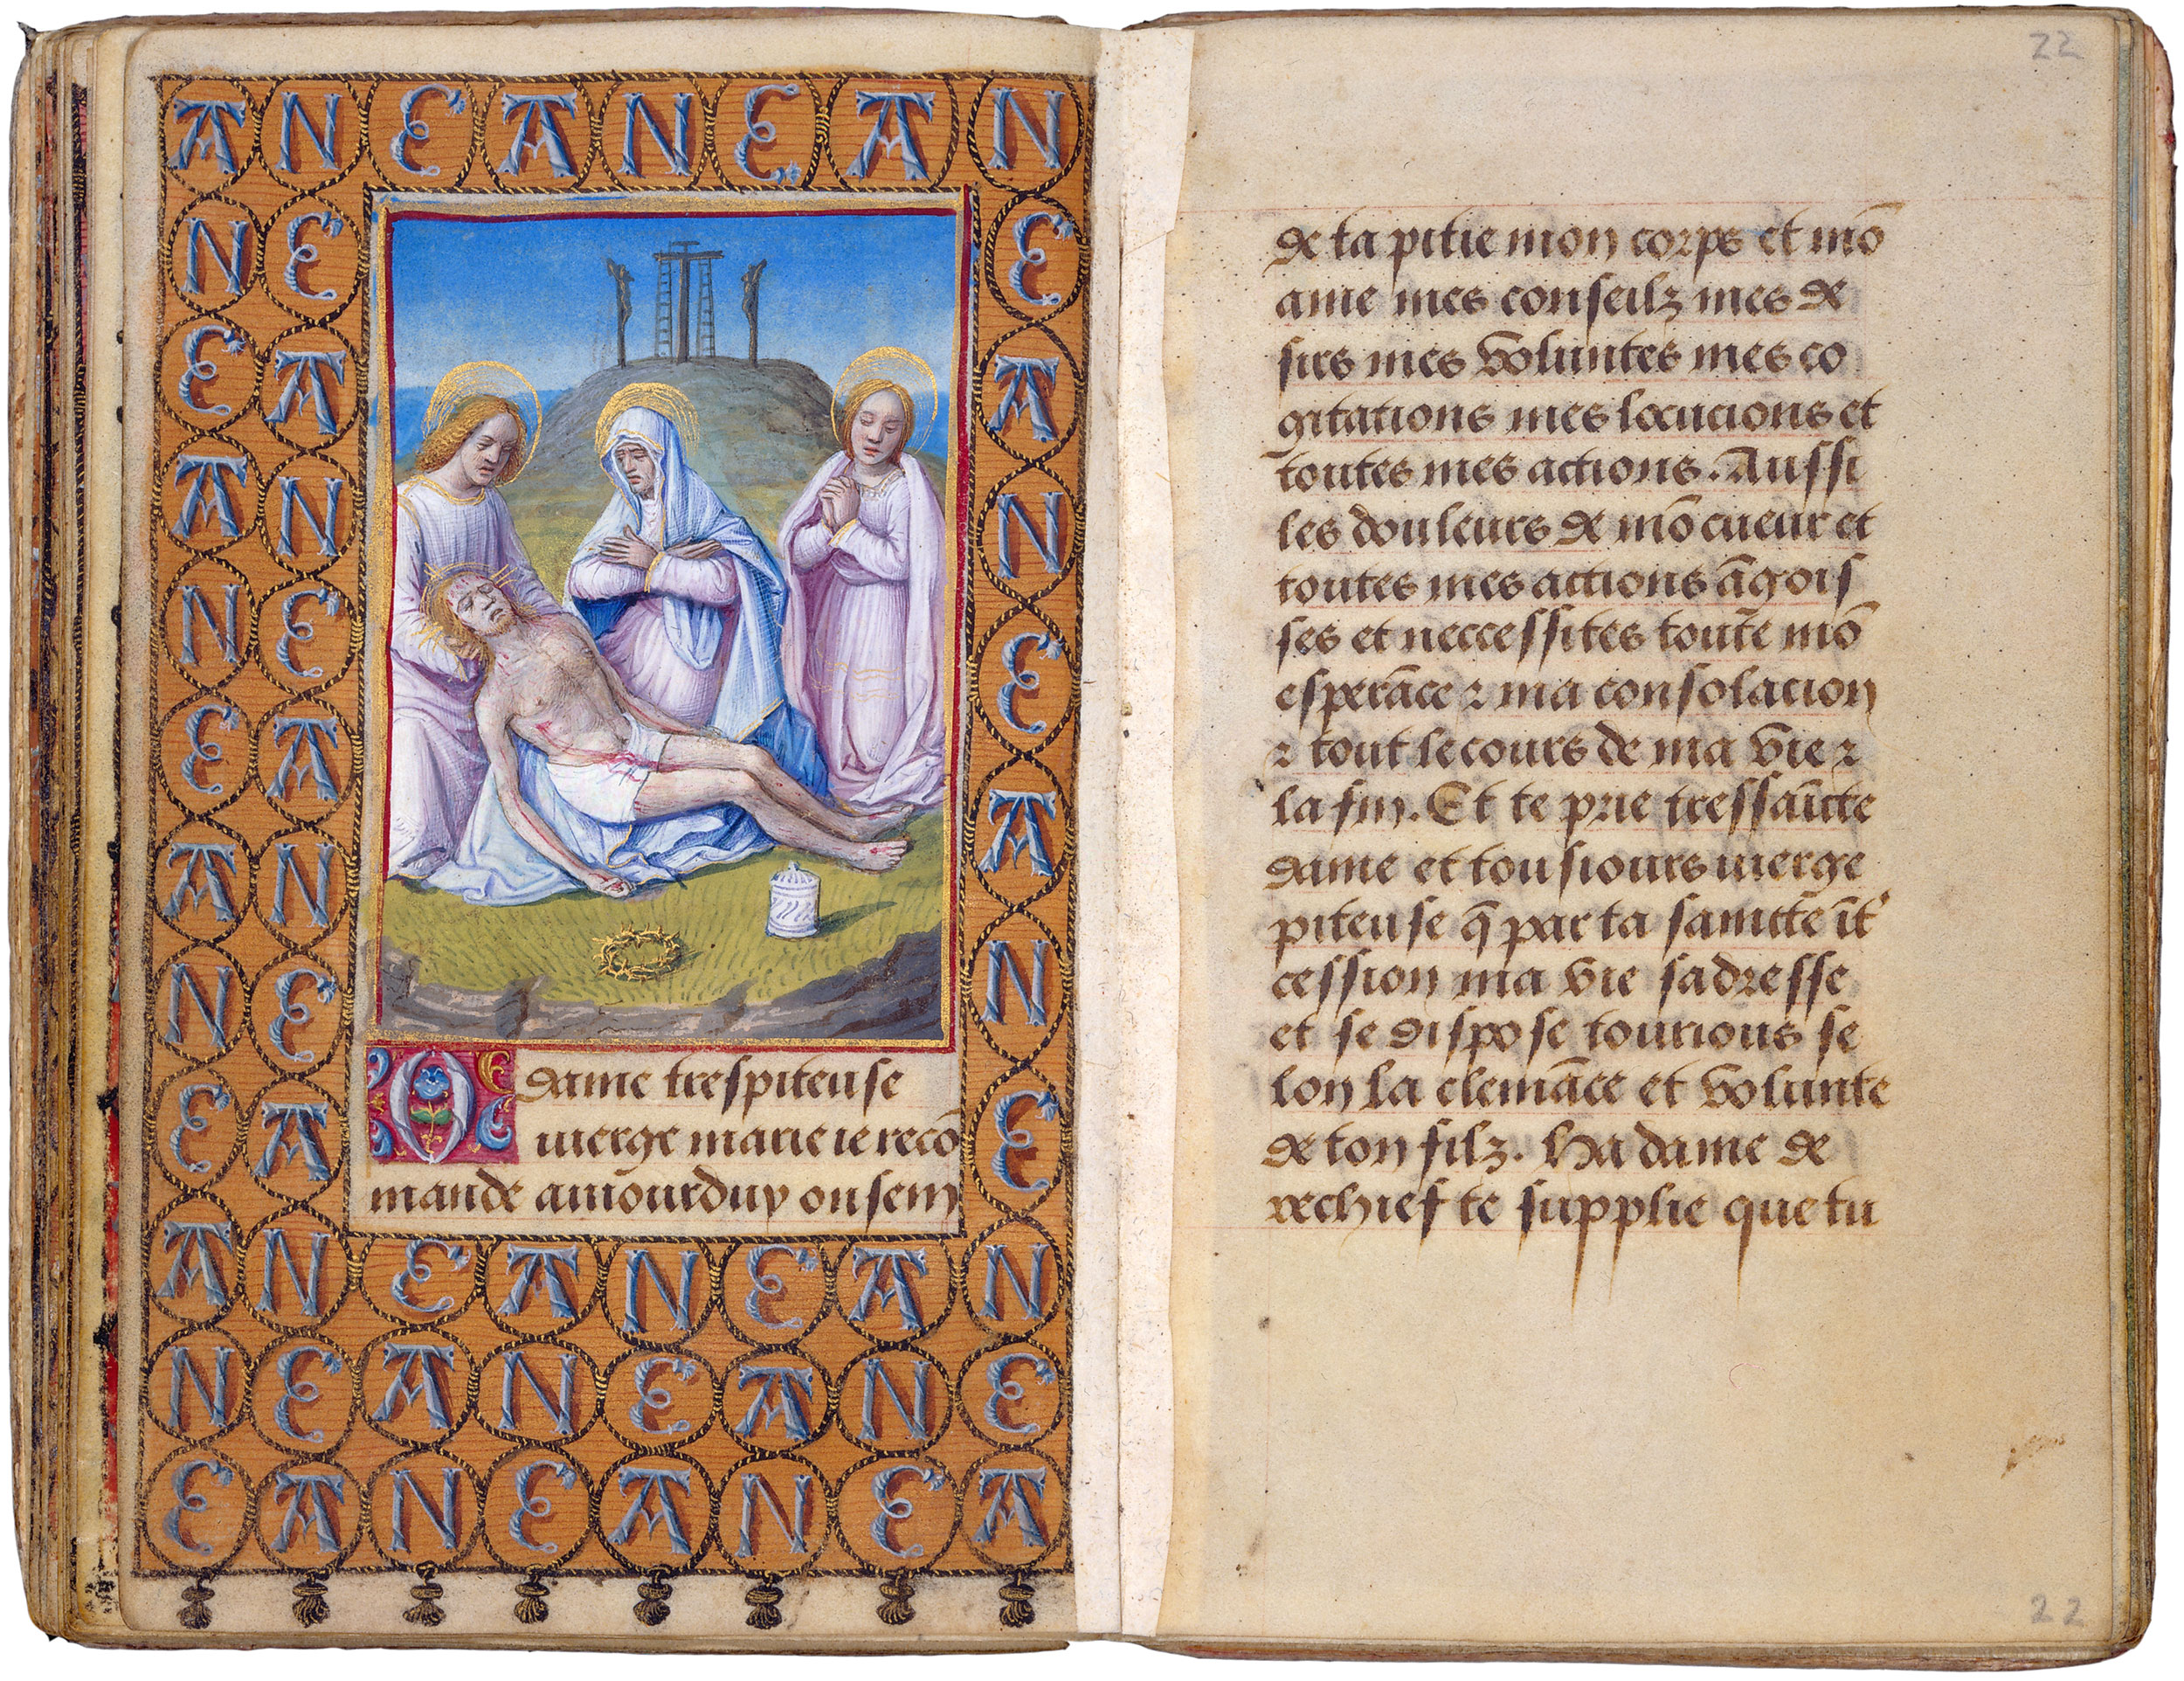 A N E A N E A N
N E
E A
A N
N E
E A
A N
N E
E A
E
A
N
E
A
N
E
O dame trespiteuse
vierge marie ie recō
mande auiourduy ou sein
A N E A N E A N
N E A N E A N E
E A N E A N E A
22
de ta pitie mon corps et mō
ame mes conseilz mes de
sirs mes voluntes mes co
gitations mes locucions et
toutes mes actions. Aussi
les douleurs de mō cueur et
toutes mes actions āgois
ses et neccessites toute mō
esperāce ⁊ ma consolacion
⁊ tout le cours de ma vie ⁊
la fin. Et te prie tressaīcte
dame et tousiours vierge
piteuse q̄ par ta saincte īt'
cession ma vie sadresse
et se dispose tourious se
lon la clemāce et volunte
de ton filz. Ha dame de
rechief te supplie que tu
22